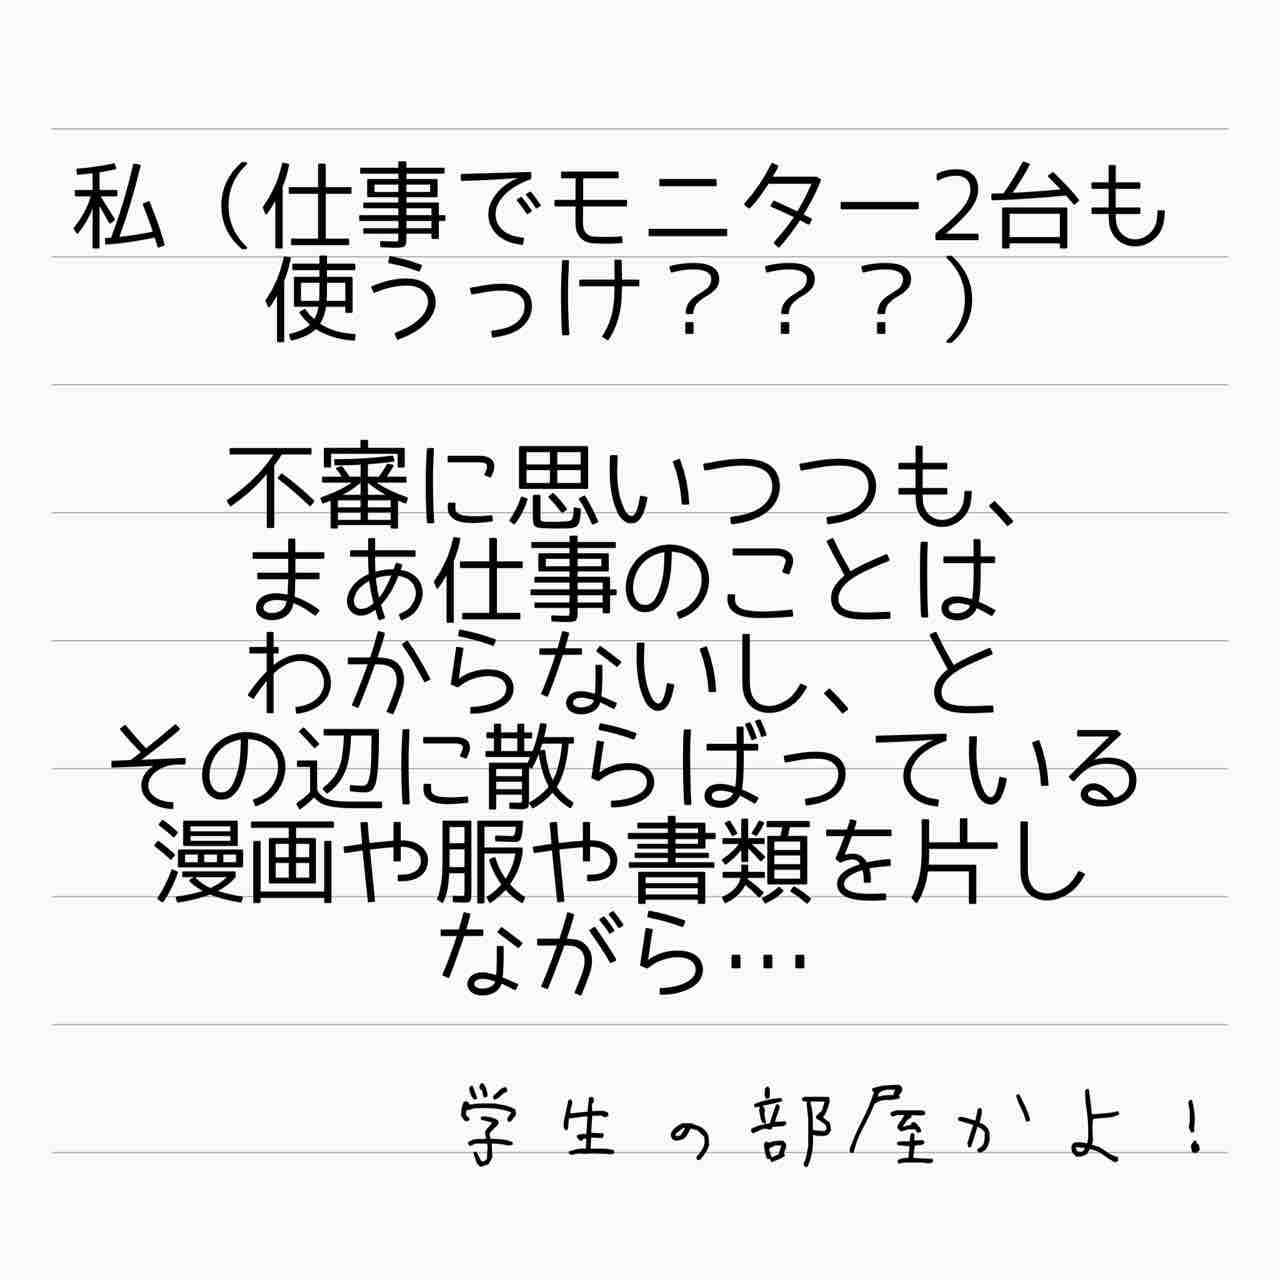 私（仕事でモニター2台も
使うっけ？？？）
不審に思いつつも、
まあ仕事のことは
わからないし、と
その辺に散らばっている
漫画や服や書類を片し
ながら…
学生の部屋かよ！